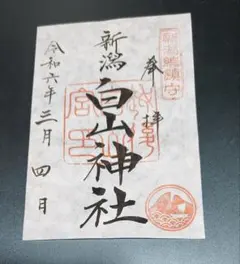 奉拝
新潟
白山神社
令和六年三月四日